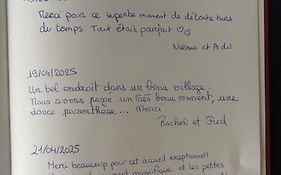 Merci pour ce superbe moment de détente hors
du temps. Tout était parfait ♡♡
Naïma et Adil
19/04/2025
Un bel endroit dans un beau village.
Nous avons passé un très beau moment, une
douce parenthèse... Merci
Rachel et Fred
21/04/2025
Merci beaucoup pour cet accueil exceptionnel!
magnifique et les petites